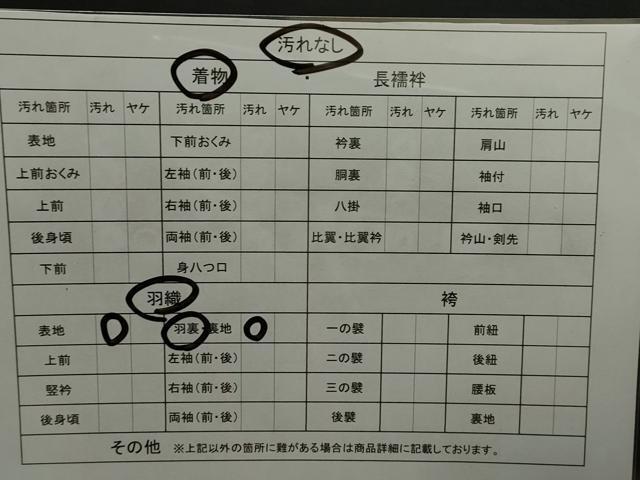 汚れなし
着物 長襦袢
汚れ箇所 汚れ ヤケ 汚れ箇所 汚れ ヤケ 汚れ箇所 汚れ ヤケ 汚れ箇所 汚れ ヤケ
表地 下前おくみ 衿裏 肩山
上前おくみ 左袖(前・後) 胴裏 袖付
上前 右袖(前・後) 八掛 袖口
後身頃 両袖(前・後) 比翼・比翼衿 衿山・剣先
下前 身八つ口
羽織 袴
表地 羽裏・裏地 一の襞 前紐
上前 左袖(前・後) 二の襞 後紐
竪衿 右袖(前・後) 三の襞 腰板
後身頃 両袖(前・後) 後襞 裏地
その他 ※上記以外の箇所に難がある場合は商品詳細に記載しております。